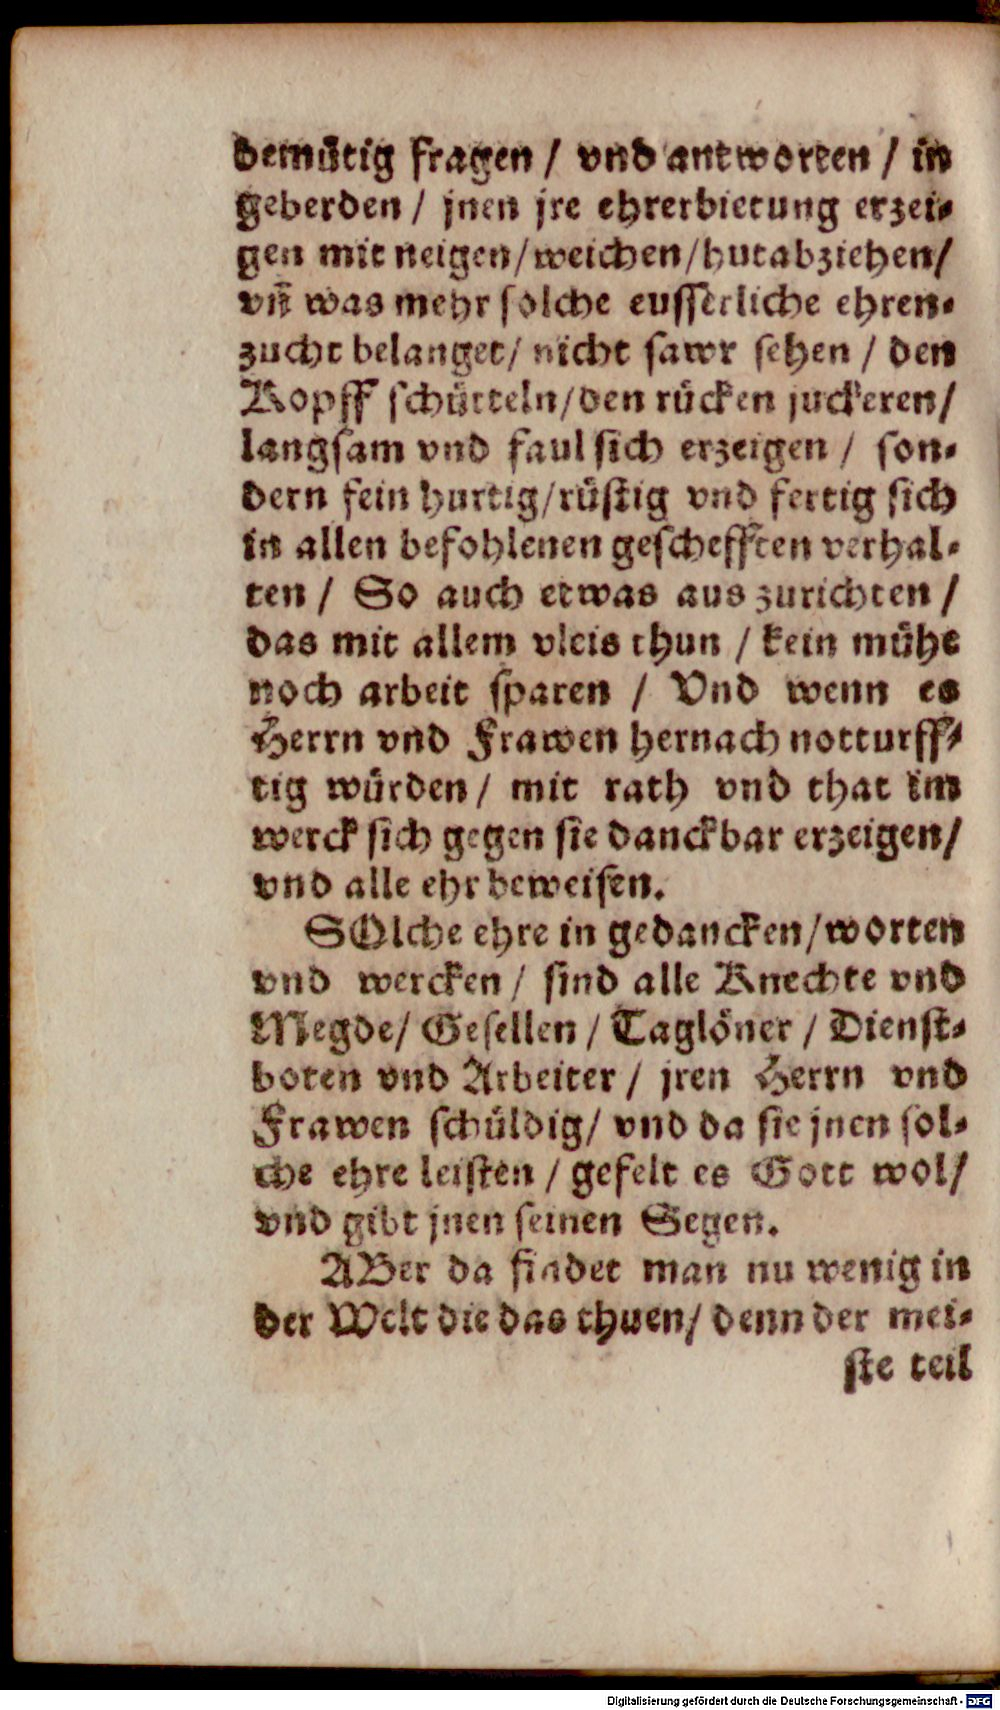 demütig fragen / vnd antworten / in
geberden / jnen jre ehrerbietung erzei-
gen mit neigen/weichen/hutabziehen/
vn̄ was mehr solche eusserliche ehren-
zucht belanget/ nicht sawr sehen / den
Kopff schütteln/den rücken juckeren/
langsam vnd faul sich erzeigen / son-
dern fein hurtig/rüstig vnd fertig sich
in allen befohlenen geschefften verhal-
ten / So auch etwas aus zurichten /
das mit allem vleis thun / kein mühe
noch arbeit sparen / Vnd wenn es
Herrn vnd Frawen hernach notturff-
tig würden / mit rath vnd that im
werck sich gegen sie danckbar erzeigen/
vnd alle ehr beweisen.
SOlche ehre in gedancken/worten
vnd wercken / sind alle Knechte vnd
Megde/ Gesellen / Taglöner / Dienst-
boten vnd Arbeiter / jren Herrn vnd
Frawen schüldig/ vnd da sie jnen sol-
che ehre leisten / gefelt es Gott wol/
vnd gibt jnen seinen Segen.
ABer da findet man nu wenig in
der Welt die das thuen/ denn der mei-
ste teil
Digitalisierung gefördert durch die Deutsche Forschungsgemeinschaft - DFG